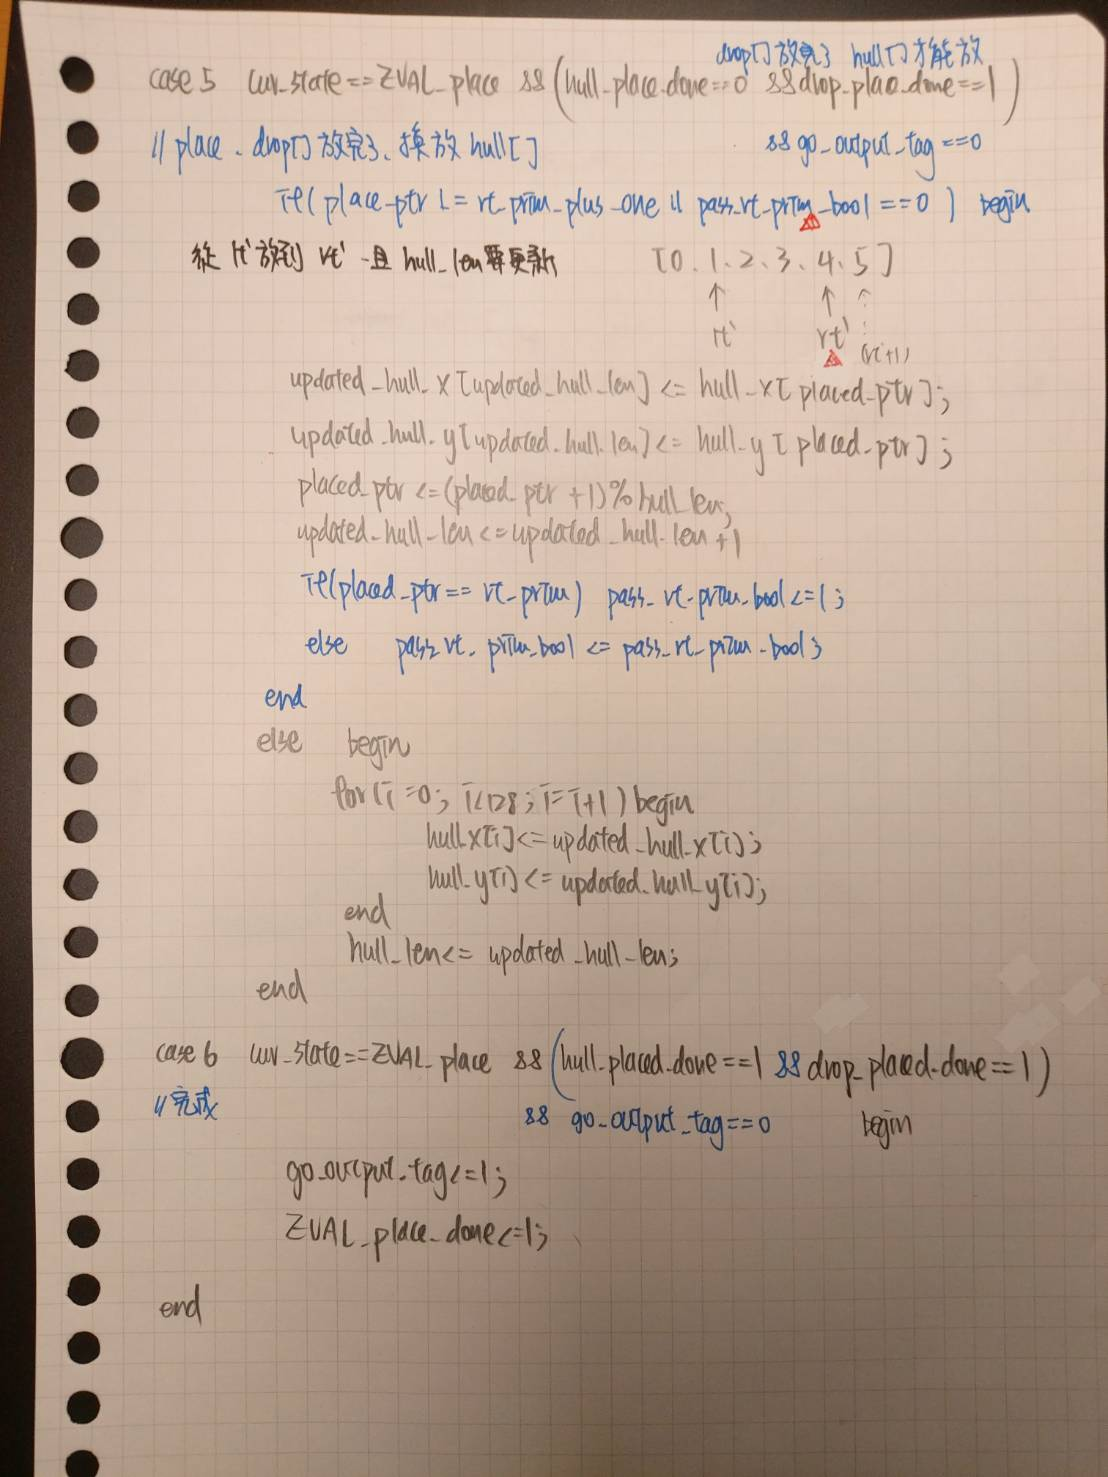 drop[]放完了 hull[]才能放
case 5 cur_state==ZVAL_place && (hull_place_done==0 && drop_place_done==1)
// place、drop[]放完了、換放 hull[]
&& go_output_tag==0
if( place_ptr != rt_prim_plus_one || pass_rt_prim_bool ==0 ) begin
從 lt'放到 rt' 且 hull_len 要更新
[0、1、2、3、4、5]
↑ ↑ ↑
lt' rt' (rt'+1)
updated_hull_x[updated_hull_len] <= hull_x[placed_ptr];
updated_hull_y[updated_hull_len] <= hull_y[placed_ptr];
placed_ptr <=(placed_ptr +1)%hull_len;
updated_hull_len<=updated_hull_len+1
if(placed_ptr== rt_prim) pass_rt_prim_bool<=1;
else pass_rt_prim_bool <= pass_rt_prim_bool;
end
else begin
for(i=0; i<128; i=i+1) begin
hull_x[i]<=updated_hull_x[i];
hull_y[i]<=updated_hull_y[i];
end
hull_len<= updated_hull_len;
end
case 6 cur_state==ZVAL_place && (hull_placed_done==1 && drop_placed_done==1)
// 完成 && go_output_tag==0 begin
go_output_tag<=1;
ZVAL_place_done<=1;
end